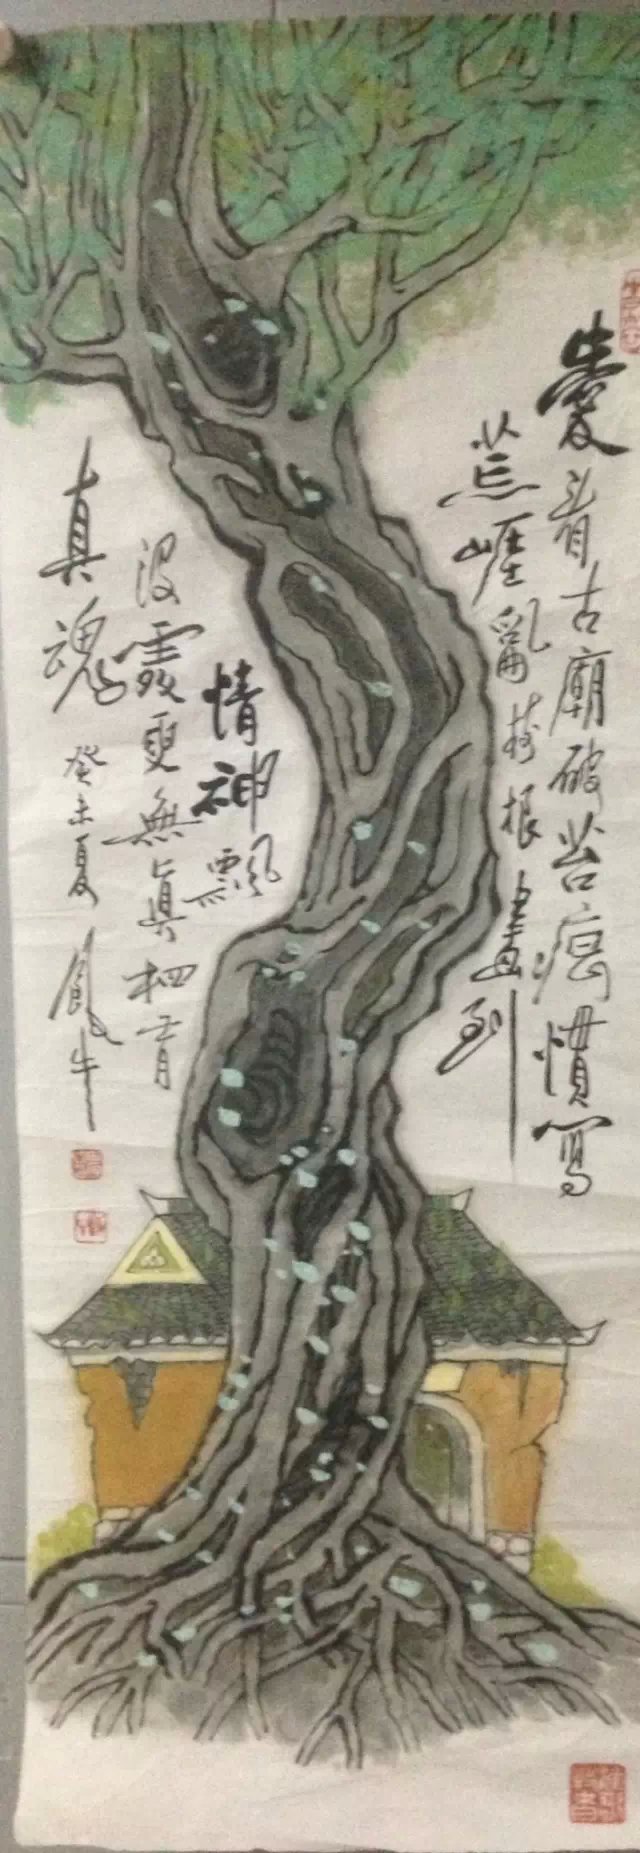 愛看古廟破苔痕慣寫
荒崖亂樹根畫到
情神飄
没處更無真相有
真魂 癸未夏